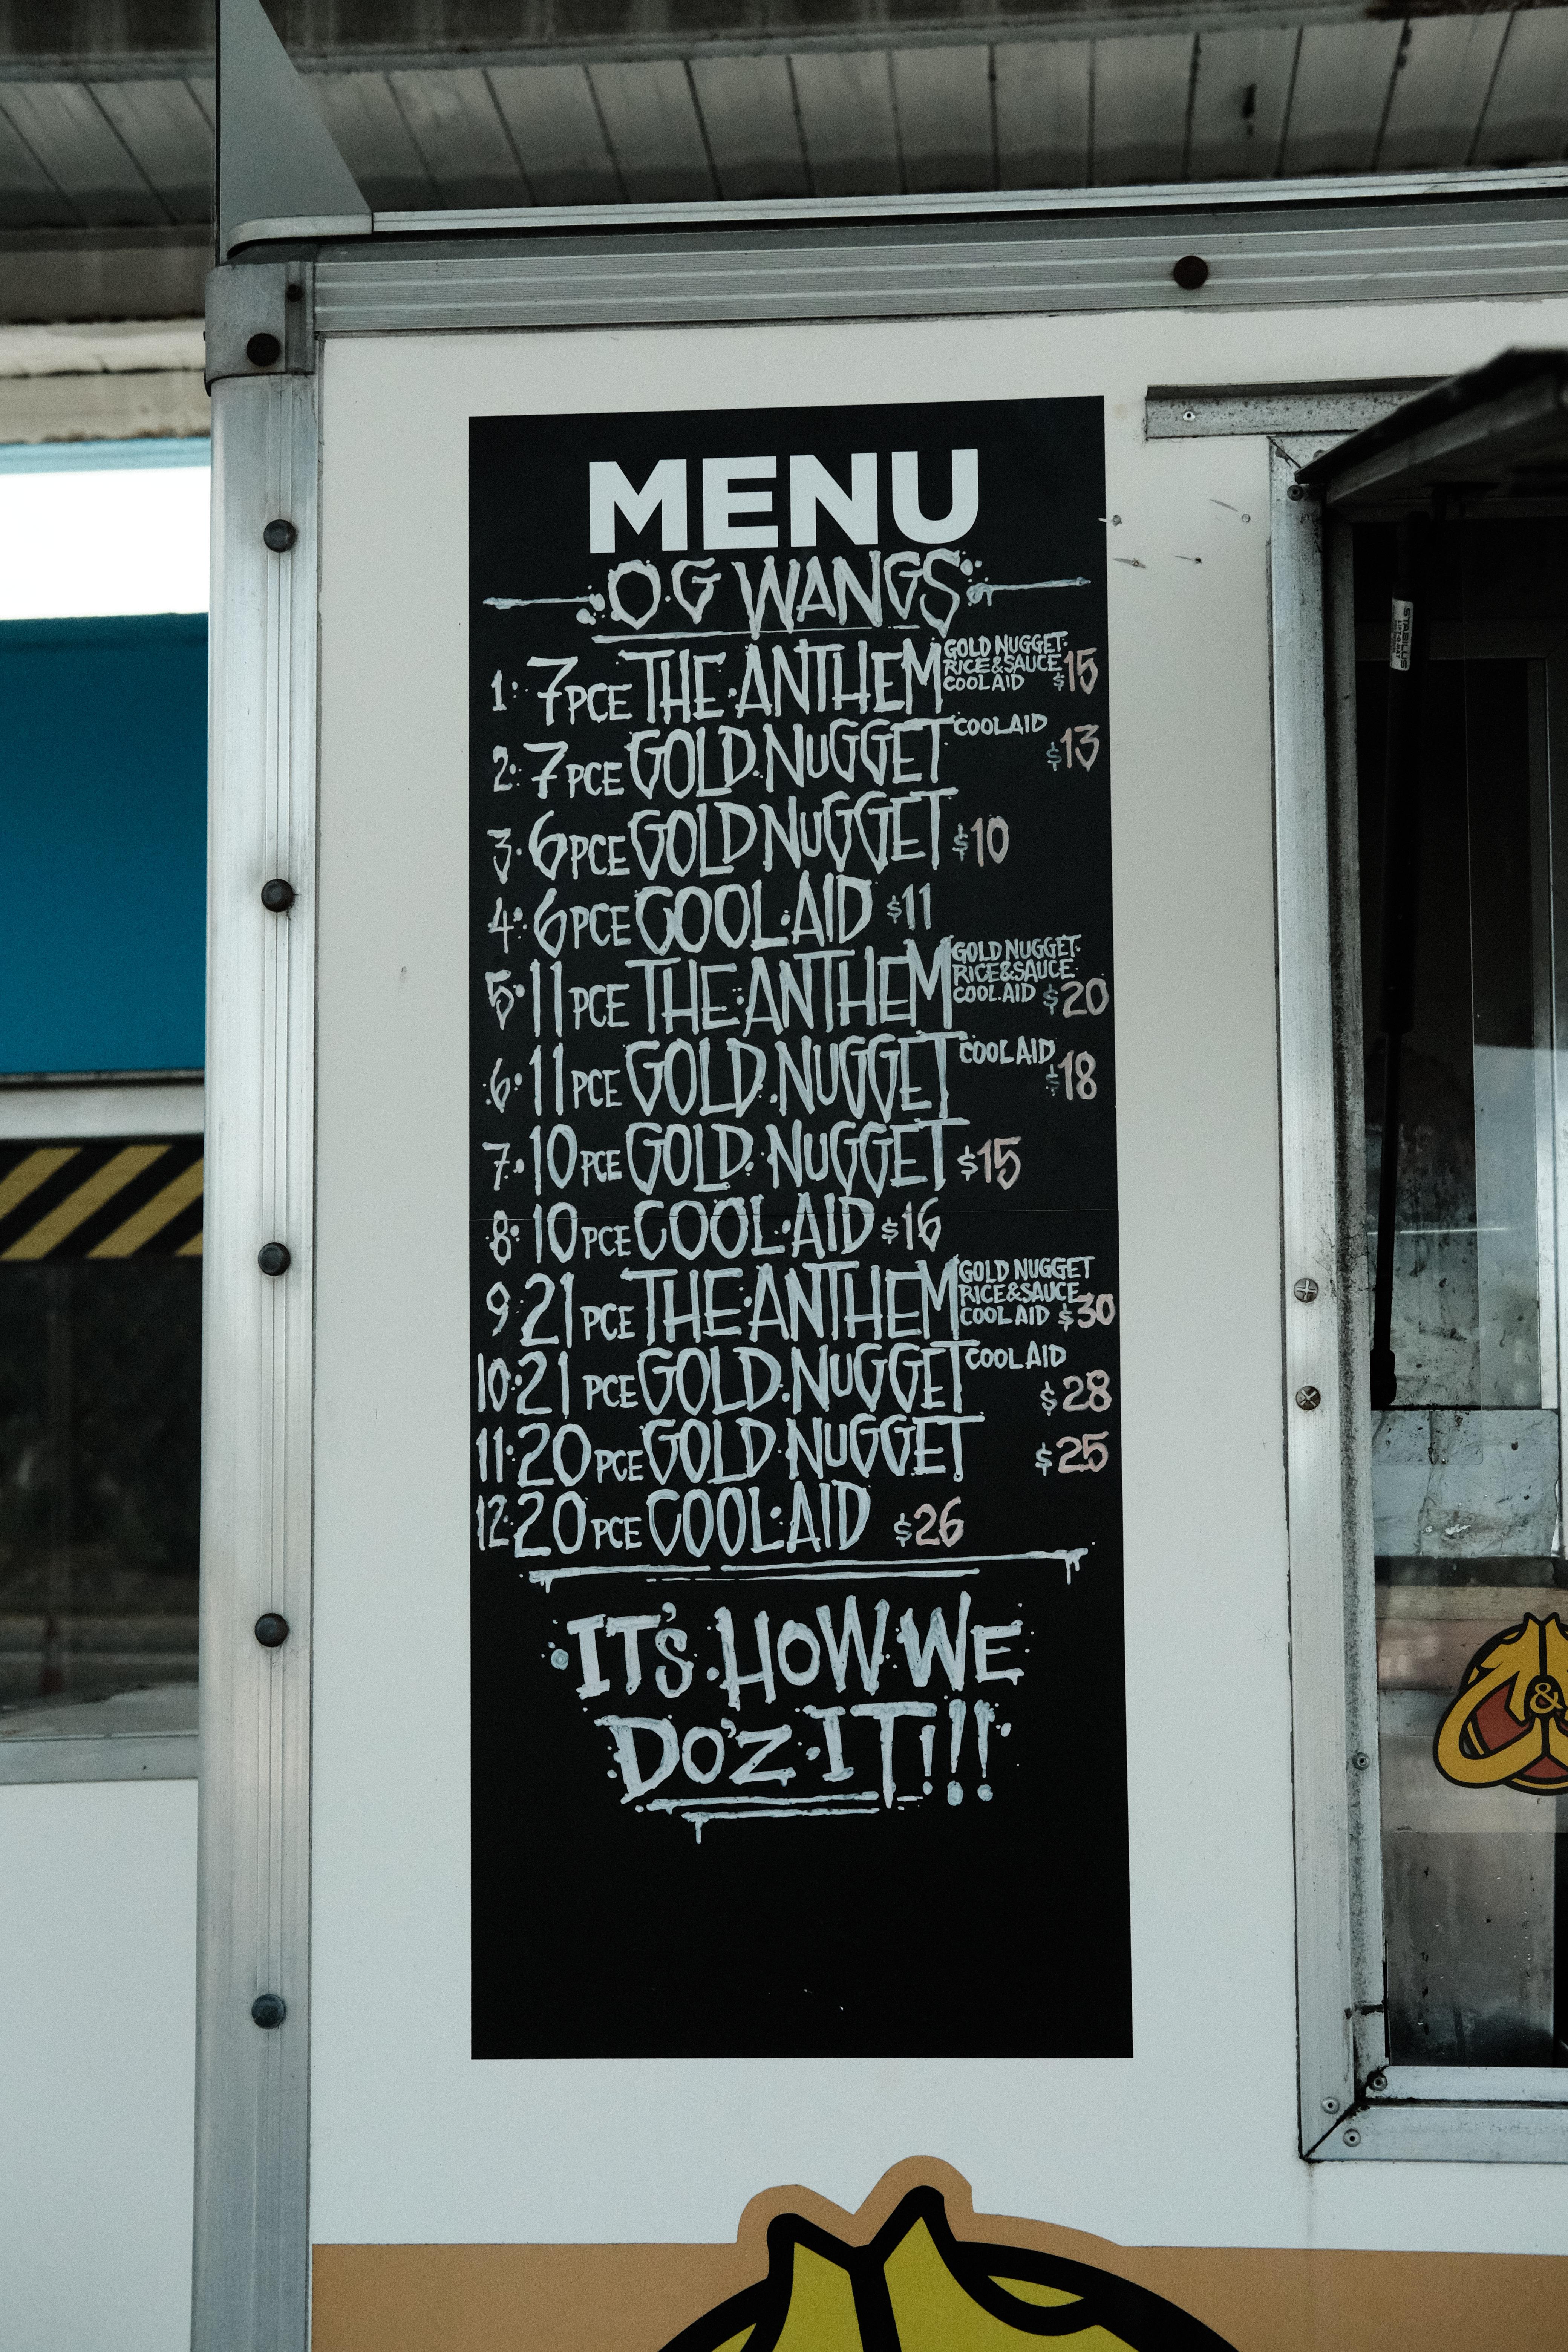 MENU
O.G WANGS
1. 7PCE THE ANTHEM GOLD NUGGET RICE & SAUCE COOL AID $15
2. 7PCE GOLD NUGGET COOL AID $13
3. 6PCE GOLD NUGGET $10
4. 6PCE COOL AID $11
5. 11PCE THE ANTHEM GOLD NUGGET RICE & SAUCE COOL AID $20
6. 11PCE GOLD NUGGET COOL AID $18
7. 10PCE GOLD NUGGET $15
8. 10PCE COOL AID $16
9. 21PCE THE ANTHEM GOLD NUGGET RICE & SAUCE COOL AID $30
10. 21 PCE GOLD NUGGET COOL AID $28
11. 20PCE GOLD NUGGET $25
12. 20PCE COOL AID $26
IT'S HOW WE
DO'Z IT!!!
STABILUS
&